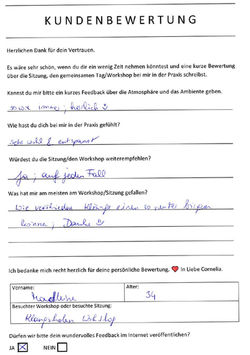 KUNDENBEWERTUNG
Herzlichen Dank für dein Vertrauen.
Es wäre sehr schön, wenn du dir ein wenig Zeit nehmen könntest und eine kurze Bewertung
über die Sitzung, den gemeinsamen Tag/Workshop bei mir in der Praxis schreibst.
Kannst du mir bitte ein kurzes Feedback über die Atmosphäre und das Ambiente geben.
wie immer, herrlich
Wie hast du dich bei mir in der Praxis gefühlt?
sehr wohl & entspannt
Würdest du die Sitzung/den Workshop weiterempfehlen?
Ja, auf jeden Fall
Was hat mir am meisten am Workshop/Sitzung gefallen?
Wie verschieden Klänge einen so weiter bringen
können, Danke
Ich bedanke mich recht herzlich für deine persönliche Bewertung. ❤ In Liebe Cornelia.
Vorname: Alter:
34
Besuchter Workshop oder besuchte Sitzung:
Klangschalen Workshop
Dürfen wir bitte dein wundervolles Feedback im Internet veröffentlichen?
JA ☒ NEIN ☐